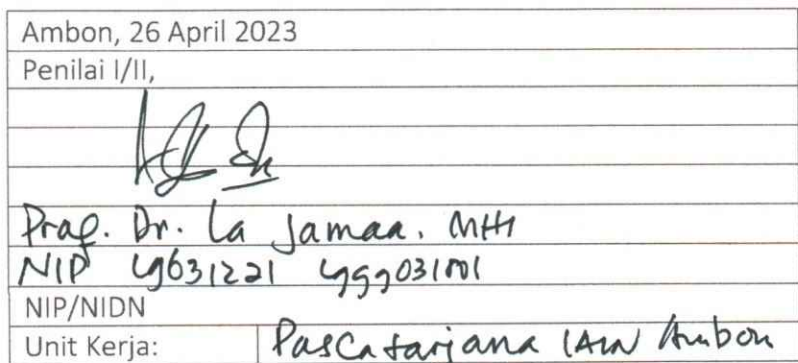 Ambon, 26 April 2023
Penilai I/II,
Prof. Dr. La Jamaa. MHI
NIP 19631221 1999031001
NIP/NIDN
Unit Kerja: Pascasarjana IAIN Ambon